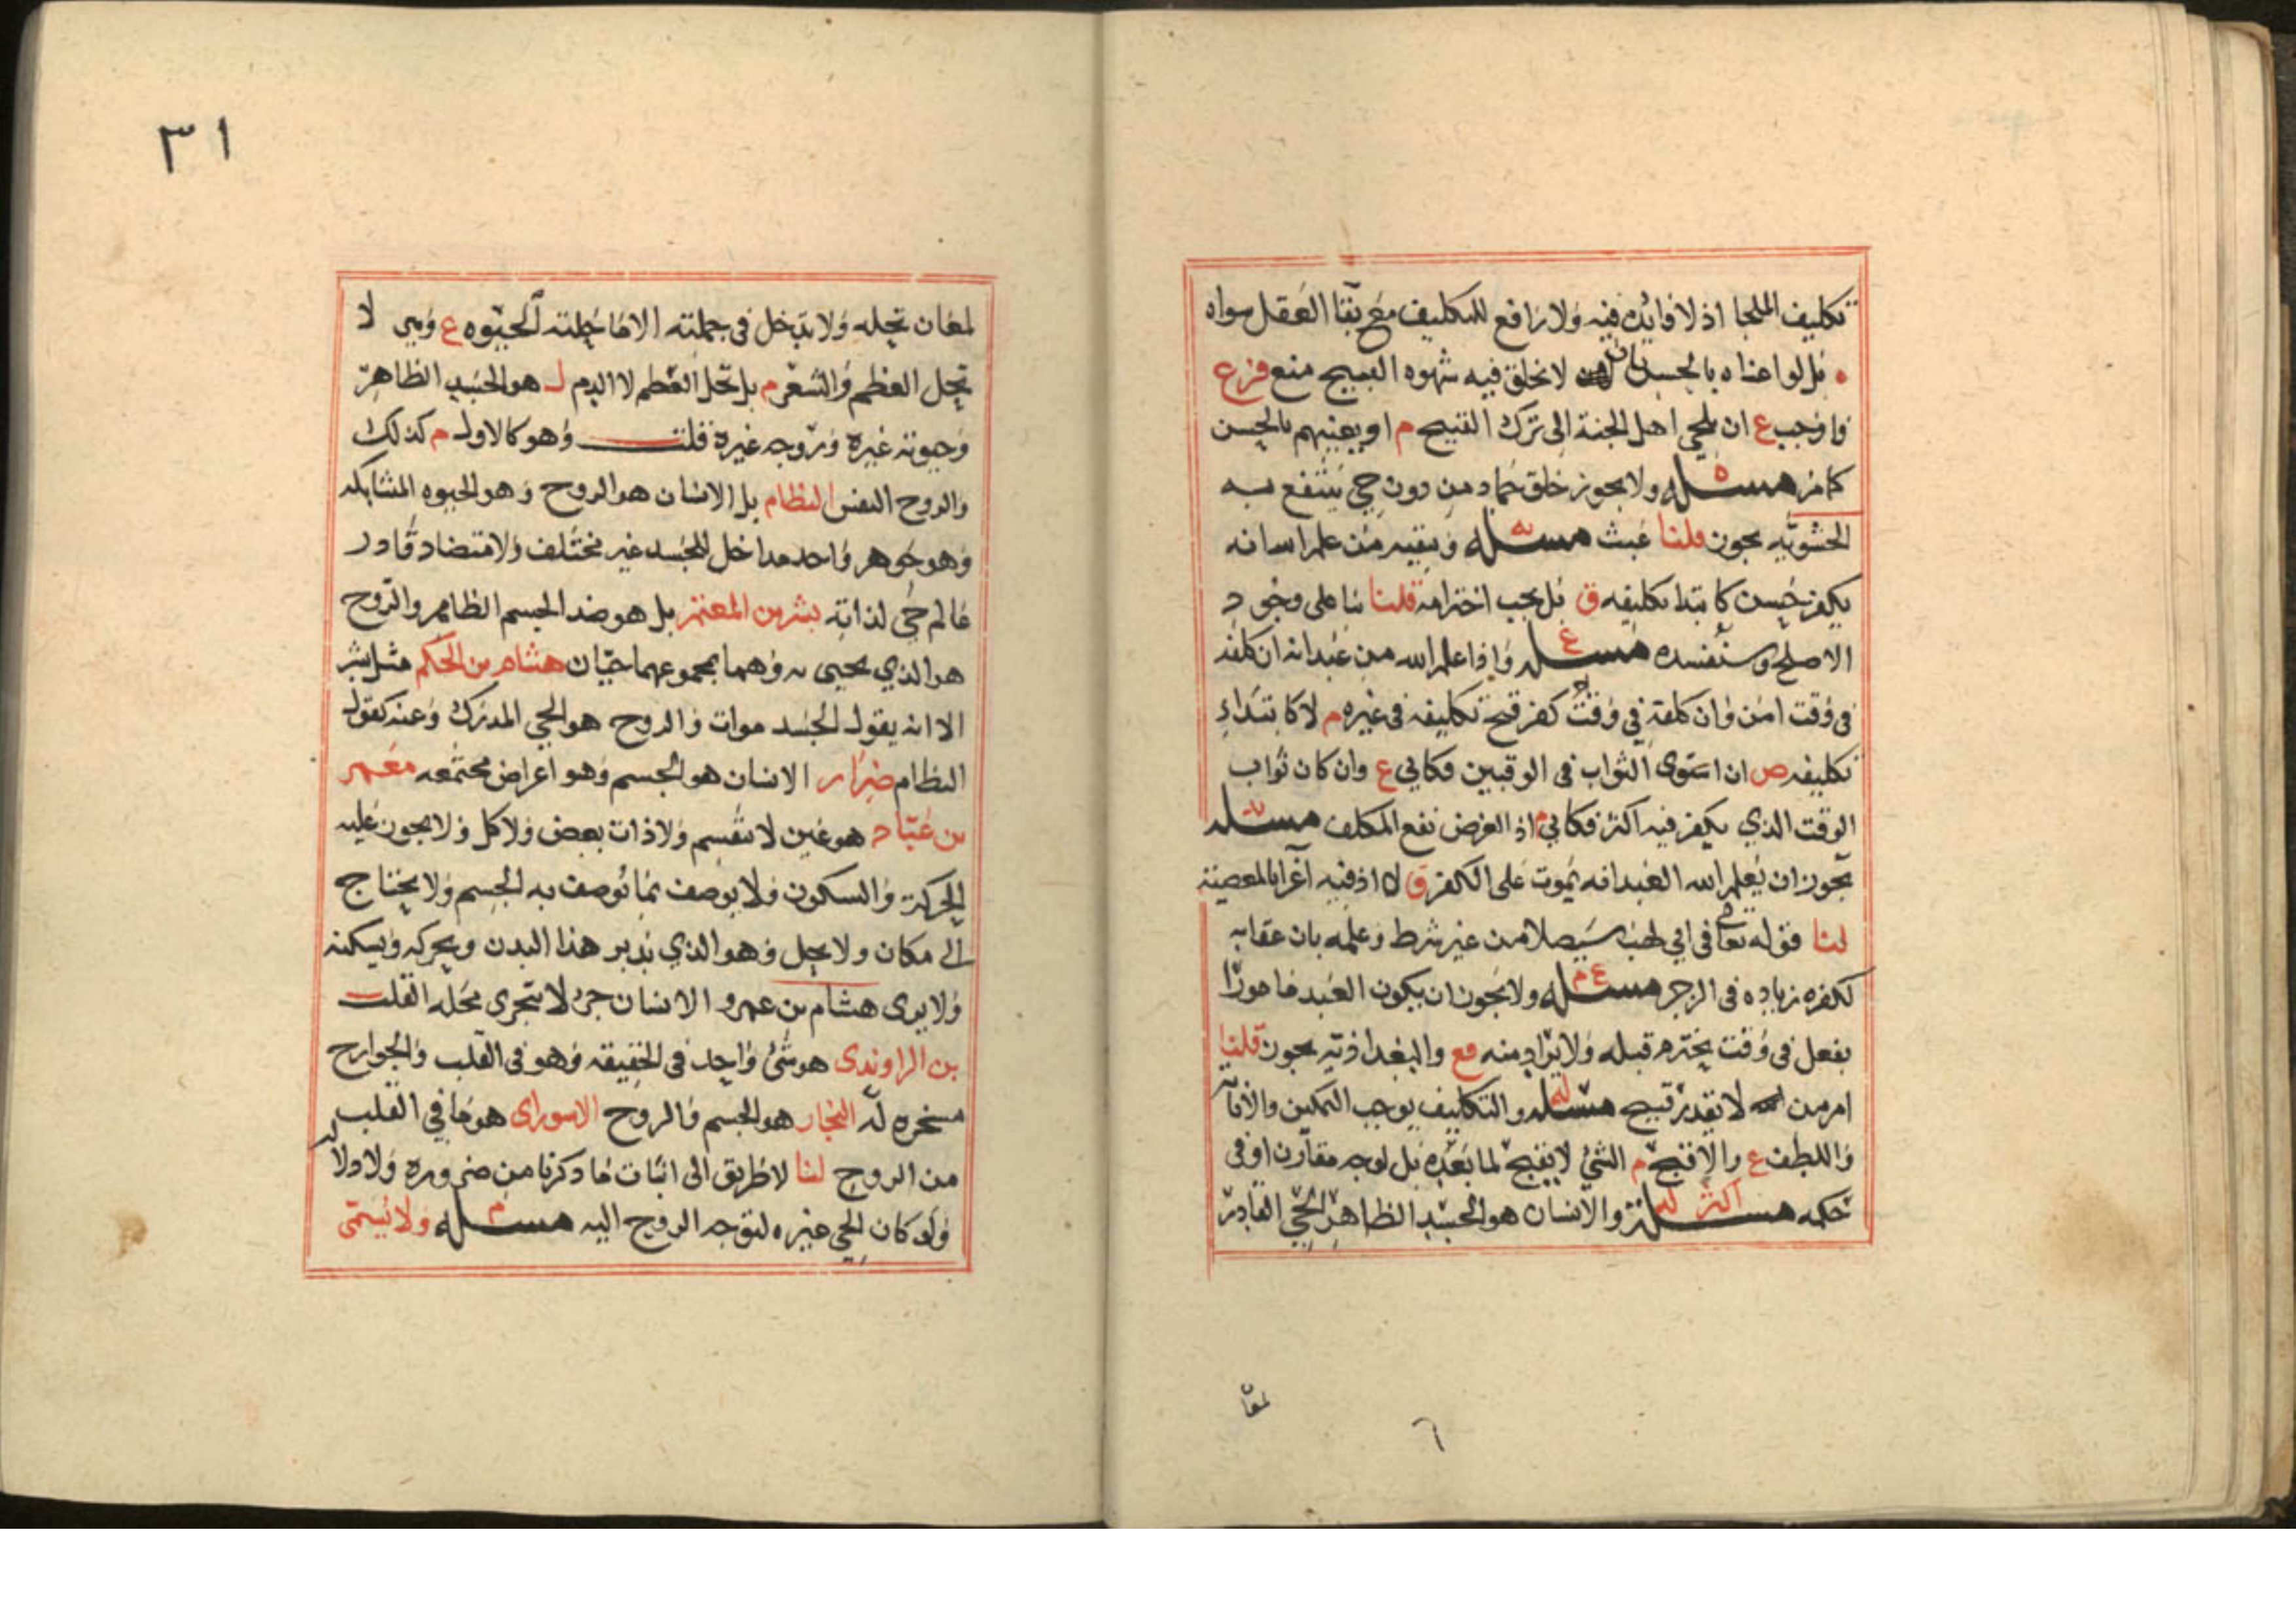 تكليف الملجا اذ لا فايده فيه ولا رافع للتكليف مع بقا العقل سواه
بل لو اغناه بالحسن بان لا يخلق فيه شهوه القبيح منع فرع
واوجب ع ان يلجي اهل الجنة الى ترك القبيح م او يغنيهم بالحسن
كما مر مسئله ولا يجوز خلق جماد من دون حي ينتفع به
الحشويه يجوز قلنا عبث مسئله وتبقيه من علم الله انه
يكفر حسن كابتدا تكليفه ق بل يجب اخترامه قلنا بنا على وجوب
الاصلح وسنفسده مسئله ع واذا علم الله من عبد انه ان كلفه
في وقت امن وان كلفه في وقت كفر قبح تكليفه في غيره م لا كابتداء
تكليفه ص ان استوى الثواب في الوقتين فكابي ع وان كان ثواب
الوقت الذي يكفر فيه اكثر فكابي م اذ الغرض نفع المكلف مسئله
يجوز ان يعلم الله العبد انه يموت على الكفر ق لا اذ فيه اغرا بالمعصية
لنا قوله تعالى في ابي لهب سيصلا من غير شرط وعلمه بان عقابه
لكفره زياده في الزجر مسئله ع م ولا يجوز ان يكون العبد مامورا
بفعل في وقت يخترم قبله ولا يراد منه مع والبغداذيه يجوز قلنا
امر من لا يقدر قبيح مسئله والتكليف يوجب التمكين والاقدار
واللطف ع والا قبح م الشيء لا يقبح لما بعده بل لوجه مقارن او في
حكمه مسئله اكثر والانسان هو الجسد الظاهر الحي القادر
لمعا
٦
٣١
لمعان تحله ولا يدخل في جملته الا ما حلته الحيوه ع وهي لا
تحل العظم والشعر م بل تحل العظم لا الدم ل هو الجسد الظاهر
وحيوته غيره وروحه غيره قلت وهو كالاول م كذلك
والروح النفس النظام بل الانسان هو الروح وهو الحيوه المشابكه
وهو جوهر واحد مداخل للجسد غير مختلف ولا متضاد قادر
عالم حي لذاته بشر بن المعتمر بل هو هذا الجسم الظاهر والروح
هو الذي يحيى به وهما بمجموعهما حيان هشام بن الحكم مثل بشر
الا انه يقول الجسد موات والروح هو الحي المدرك وعنه كقول
النظام ضرار الانسان هو الجسم وهو اعراض مجتمعه معمر
بن عباد هو عين لا تنقسم ولا ذات بعض ولا كل ولا يجوز عليه
الحركة والسكون ولا يوصف بما توصف به الجسم ولا يحتاج
الى مكان ولا يحل وهو الذي يدبر هذا البدن ويحركه ويسكنه
ولا يرى هشام بن عمرو الانسان جزء لا يتجزى محله القلب
بن الراوندى هو شئ واحد في الحقيقه وهو في القلب والجوارح
مسخره له النجار هو الجسم والروح الاسوراى هو ما في القلب
من الروح لنا لا طريق الى اثبات ما ذكرنا من ضروره ولا دلاله
ولو كان الحي غيره لتوجه الروح اليه مسئله م ولا يسمى